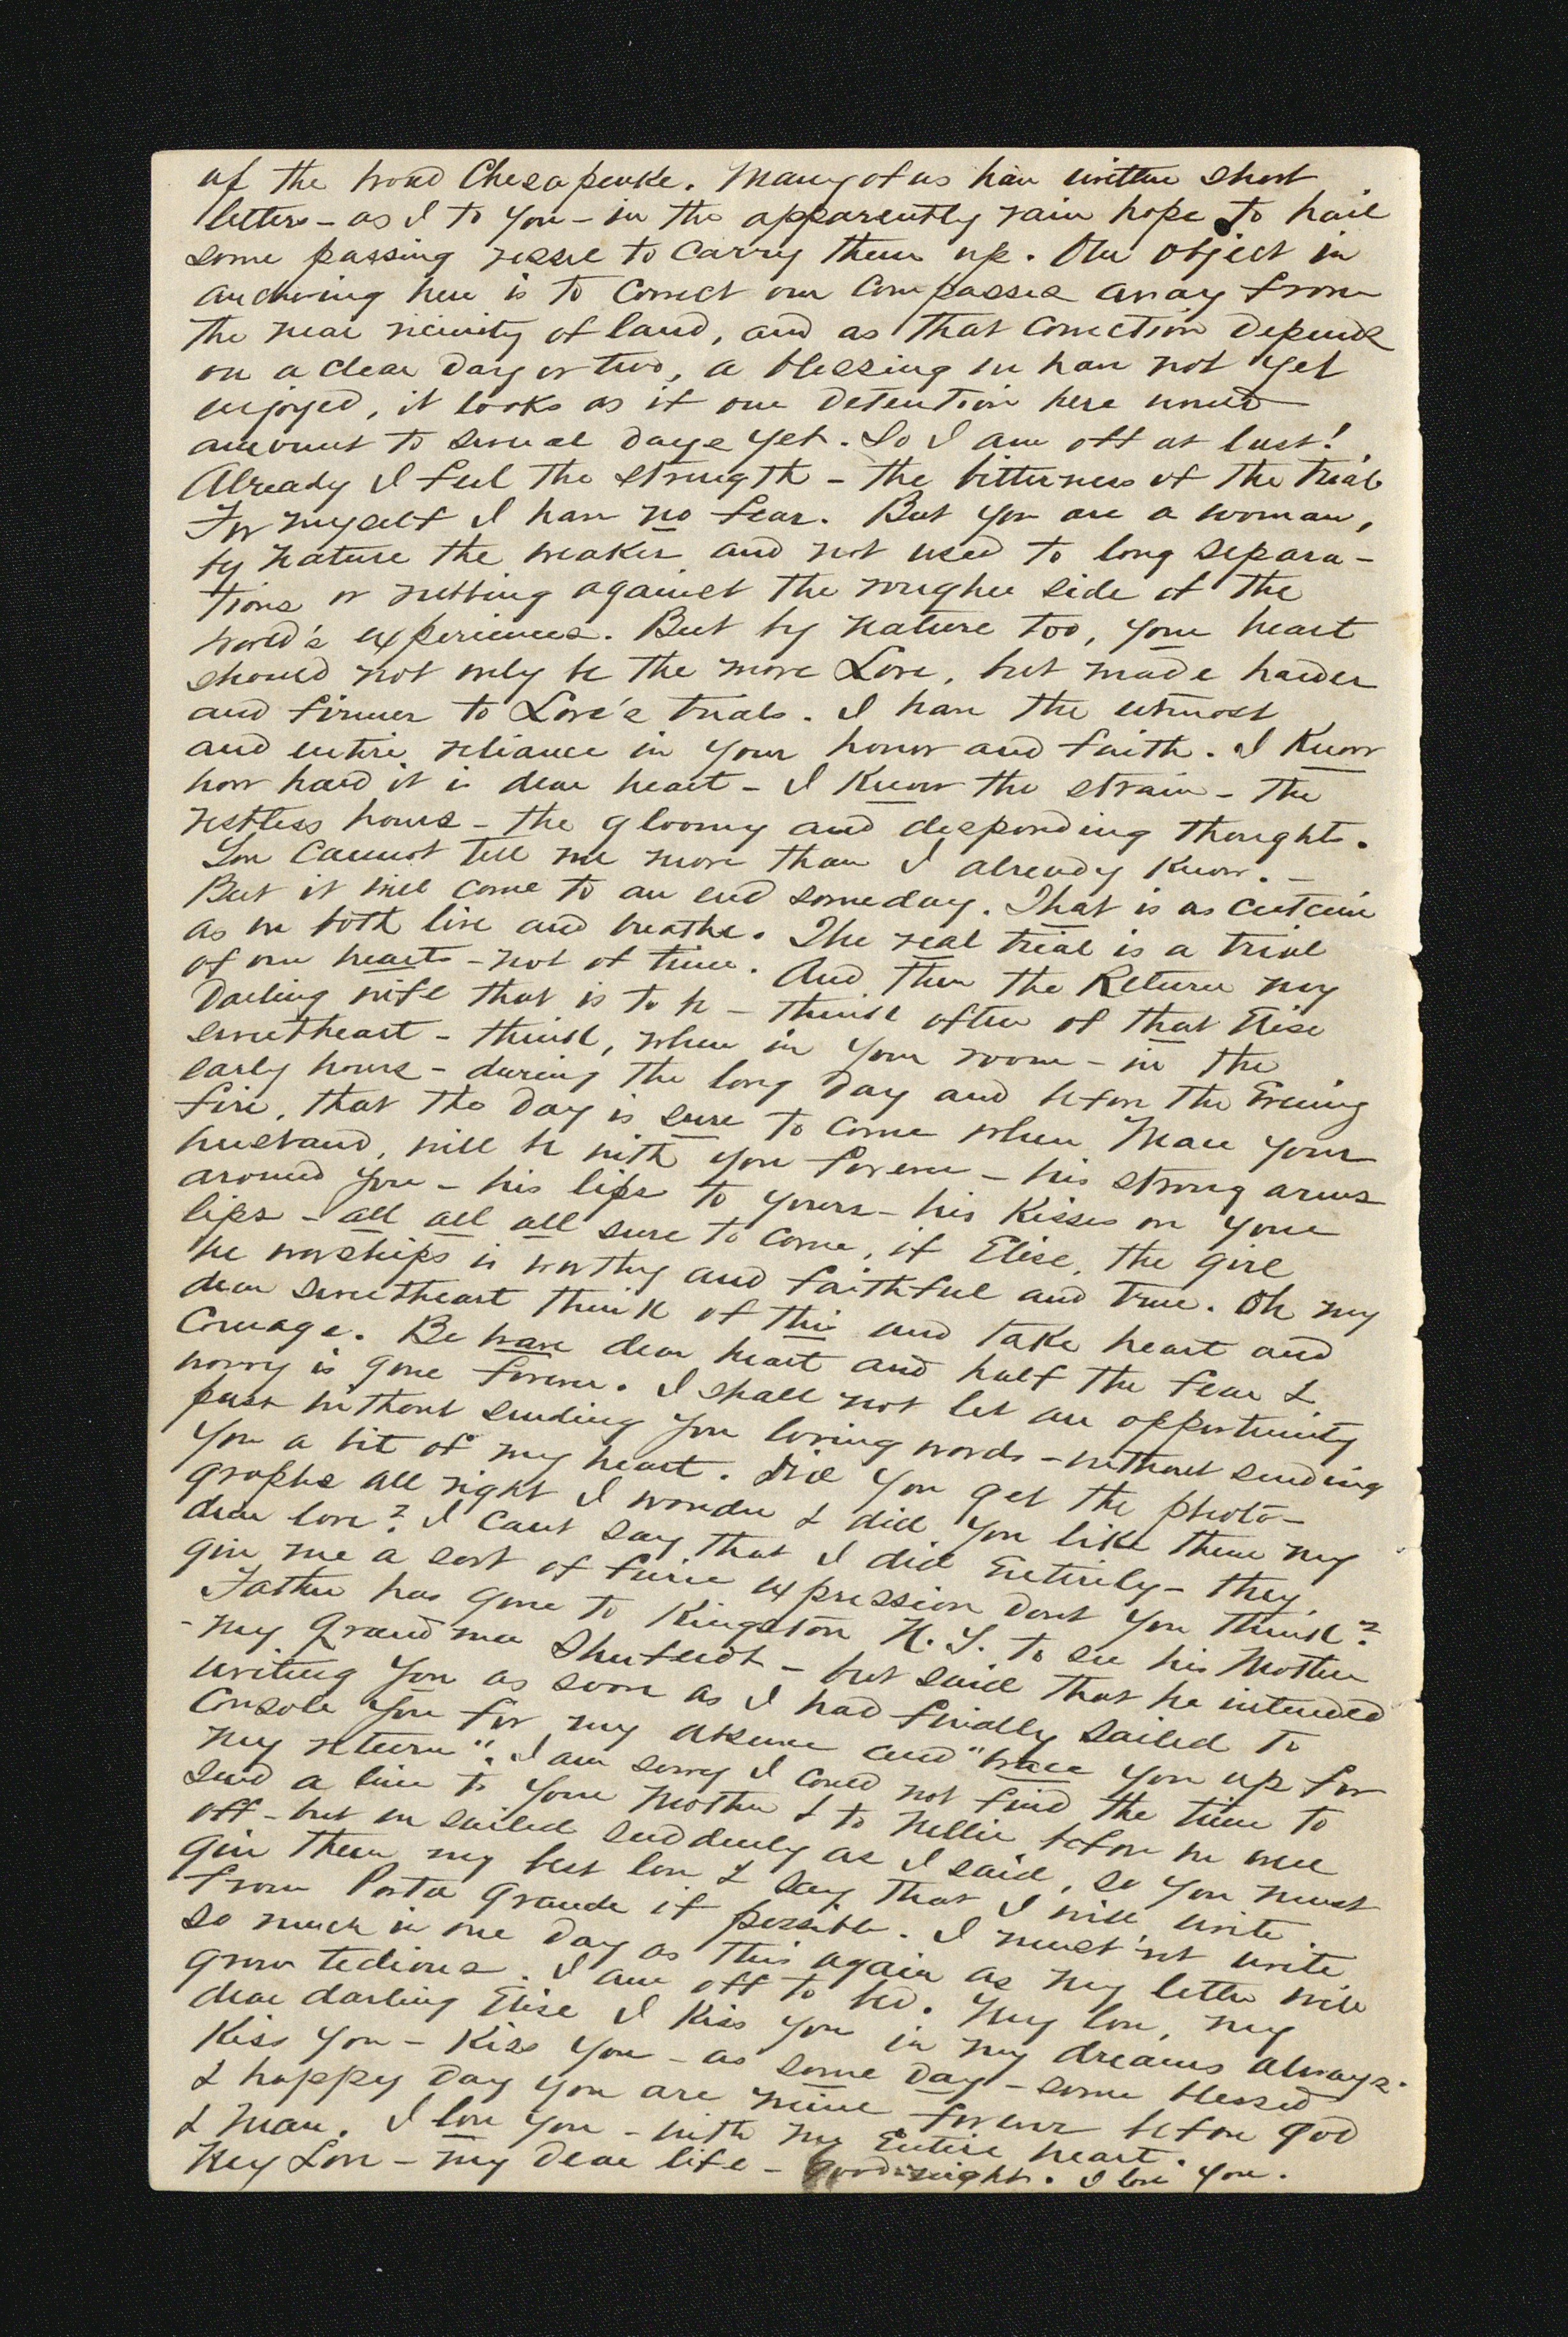 of the broad Chesapeake. Many of us have written short
letters - as I to you - in the apparently vain hope to hail
some passing vessel to carry them up. Our object in
anchoring here is to correct our compasses away from
the near vicinity of land, and as that correction depends
on a clear day or two, a blessing we have not yet
enjoyed, it looks as if our detention here would
amount to several days yet. So I am off at last!
Already I feel the strength - the bitterness of the trial.
For myself I have no fear. But you are a woman,
by nature the weaker and not used to long separa-
tions or rubbing against the rougher side of the
world's experiences. But by nature too, your heart
should not only be the more Love, but made harder
and firmer to Love's trials. I have the utmost
and entire reliance in your honor and faith. I know
how hard it is dear heart - I know the strain - the
restless hours - the gloomy and desponding thought.
You cannot tell me more than I already know. -
But it will come to an end someday. That is as certain
as we both live and breathe. The real trial is a trial
of our hearts - not of time. And then the Return my
Darling wife that is to be - think often of that Elise
sweetheart - think, when in your room - in the
early hours - during the long day and before the Evening
fire, that the day is sure to come when Mace your
husband, will be with you forever - his strong arms
around you - his lips to yours - his kisses on your
lips - all all all sure to come, if Elise, the girl
he worships is worthy and faithful and true. Oh my
dear sweetheart think of this and take heart and
Courage. Be brave dear heart and half the fear &
worry is gone forever. I shall not let an opportunity
pass without sending you loving words - without sending
you a bit of my heart. Did you get the photo-
graphs all right I wonder & did you like them my
dear love? I cant say that I did Entirely - they
give me a sort of expression dont you think?
Father has gone to Kingston N. Y. to see his Mother
- my Grandma Shufeldt - but said that he intended
writing you as soon as I had finally sailed to
console you for my absence and "brace you up for
my return". I am sorry I could not find the time to
send a line to your Mother & to Nellie before we were
off - but we sailed suddenly as I said, so you must
give them my best love & say that I will write
from Porto Grande if possible. I must'nt write
so much in one day as this again as my letter will
grow tedious. I am off to bed. My love, my
dear darling Elise I kiss you in my dreams always.
Kiss you - Kiss you - as some day - some blessed
& happy day you are mine forever before God
& man. I love you - with my Entire heart.
My Love - my dear life - Good-night. I love you.